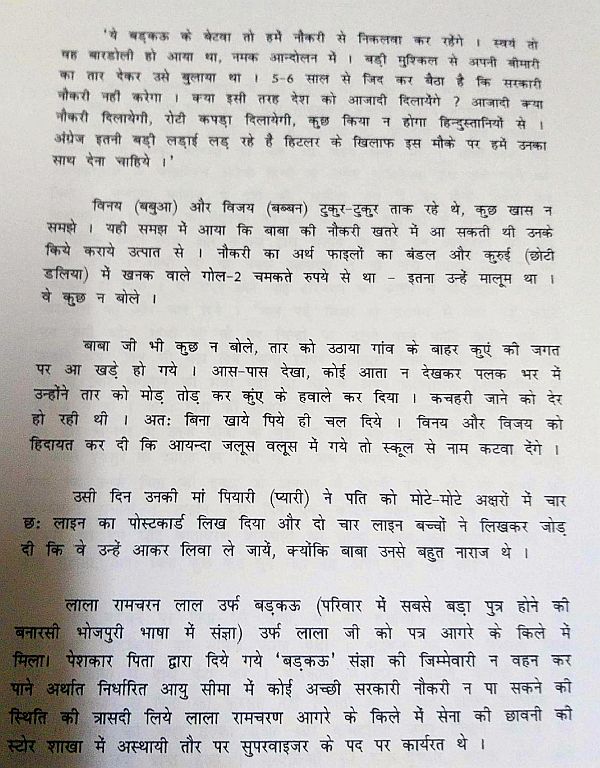 'ये बड़कऊ के बेटवा तो हमें नौकरी से निकलवा कर रहेंगे । स्वयं तो
वह बारडोली हो आया था, नमक आन्दोलन में । बड़ी मुश्किल से अपनी बीमारी
का तार देकर उसे बुलाया था । 5-6 साल से जिद कर बैठा है कि सरकारी
नौकरी नहीं करेगा । क्या इसी तरह देश को आजादी दिलायेंगे ? आजादी क्या
नौकरी दिलायेगी, रोटी कपड़ा दिलायेगी, कुछ किया न होगा हिन्दुस्तानियों से ।
अंग्रेज इतनी बड़ी लड़ाई लड़ रहे है हिटलर के खिलाफ इस मौके पर हमें उनका
साथ देना चाहिये ।'
विनय (बबुआ) और विजय (बब्बन) टुकुर-टुकुर ताक रहे थे, कुछ खास न
समझे । यही समझ में आया कि बाबा की नौकरी खतरे में आ सकती थी उनके
किये कराये उत्पात से । नौकरी का अर्थ फाइलों का बंडल और कुरुई (छोटी
डलिया) में खनक वाले गोल-2 चमकते रुपये से था - इतना उन्हें मालूम था ।
वे कुछ न बोले ।
बाबा जी भी कुछ न बोले, तार को उठाया गांव के बाहर कुएं की जगत
पर आ खड़े हो गये । आस-पास देखा, कोई आता न देखकर पलक भर में
उन्होंने तार को मोड़ तोड़ कर कुंए के हवाले कर दिया । कचहरी जाने को देर
हो रही थी । अतः बिना खाये पिये ही चल दिये । विनय और विजय को
हिदायत कर दी कि आयन्दा जलूस वलूस में गये तो स्कूल से नाम कटवा देंगे ।
उसी दिन उनकी मां पियारी (प्यारी) ने पति को मोटे-मोटे अक्षरों में चार
छः लाइन का पोस्टकार्ड लिख दिया और दो चार लाइन बच्चों ने लिखकर जोड़
दी कि वे उन्हें आकर लिवा ले जायें, क्योंकि बाबा उनसे बहुत नाराज थे ।
लाला रामचरन लाल उर्फ बड़कऊ (परिवार में सबसे बड़ा पुत्र होने की
बनारसी भोजपुरी भाषा में संज्ञा) उर्फ लाला जी को पत्र आगरे के किले में
मिला। पेशकार पिता द्वारा दिये गये 'बड़कऊ' संज्ञा की जिम्मेवारी न वहन कर
पाने अर्थात निर्धारित आयु सीमा में कोई अच्छी सरकारी नौकरी न पा सकने की
स्थिति की त्रासदी लिये लाला रामचरण आगरे के किले में सेना की छावनी की
स्टोर शाखा में अस्थायी तौर पर सुपरवाइजर के पद पर कार्यरत थे ।